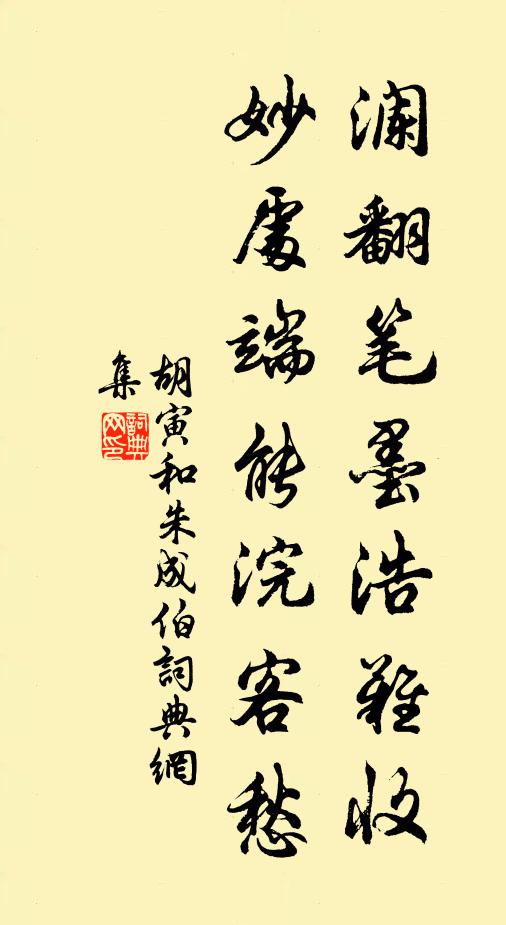 澜翻笔墨浩難收
妙處端能浣客愁
胡寅和朱成伯詞典網
集
詞典
网印